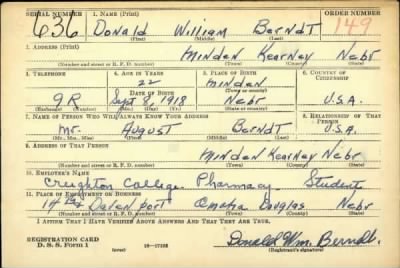 SERIAL NUMBER 1. NAME (Print) ORDER NUMBER
636 Donald William Berndt 149
(First) (Middle) (Last)
2. ADDRESS (Print)
Minden Kearney Nebr
(Number and street or R. F. D. number) (Town) (County) (State)
3. TELEPHONE 4. AGE IN YEARS 5. PLACE OF BIRTH 6. COUNTRY OF CITIZENSHIP
22 Minden
DATE OF BIRTH (Town or county)
9R Sept 8, 1918 Nebr U.S.A.
(Exchange) (Number) (Mo.) (Day) (Yr.) (State or country)
7. NAME OF PERSON WHO WILL ALWAYS KNOW YOUR ADDRESS 8. RELATIONSHIP OF THAT PERSON
Mr. August Berndt U.S.A.
(Mr., Mrs., Miss) (First) (Middle) (Last)
9. ADDRESS OF THAT PERSON
Minden Kearney Nebr
(Number and street or R. F. D. number) (Town) (County) (State)
10. EMPLOYER'S NAME
Creighton College Pharmacy Student
11. PLACE OF EMPLOYMENT OR BUSINESS
14 Davenport Omaha Douglas Nebr
(Number and street or R. F. D. number) (Town) (County) (State)
I AFFIRM THAT I HAVE VERIFIED ABOVE ANSWERS AND THAT THEY ARE TRUE.
REGISTRATION CARD
D. S. S. Form 1 (over) 16-17105 Donald Wm. Berndt
(Registrant's signature)